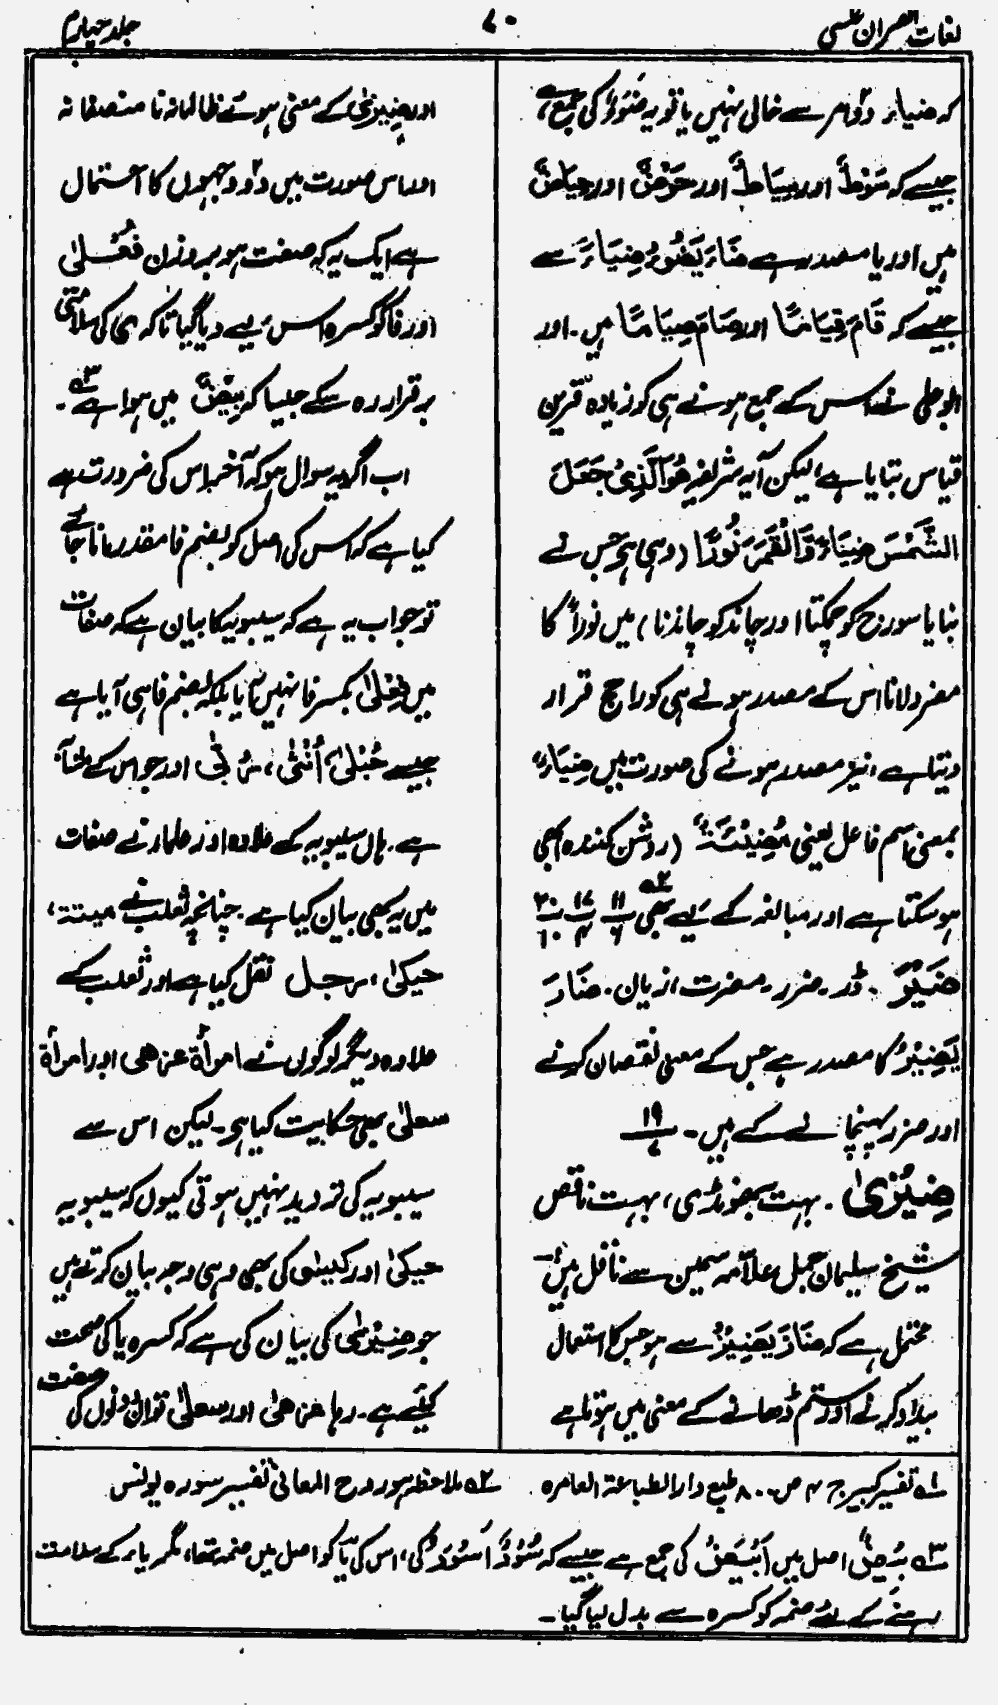 لغات القرآن عکسی
۷۰
جلد چہارم
کہ ضیاء دو امر سے خالی نہیں یا تو یہ ضَوْءٌ کی جمع ہے،
جیسے کہ سَوْطٌ اور سِیَاطٌ اور حَوْضٌ اور حِیَاضٌ
ہیں اور یا مصدر ہے ضَاءَ یَضُوْءُ ضِیَاءً سے
جیسے کہ قَامَ قِیَامًا اور صَامَ صِیَامًا ہیں۔ اور
ابوعلی نے اس کے جمع ہونے ہی کو زیادہ قرین
قیاس بتایا ہے، لیکن آیہ شریفہ هُوَ الَّذِیْ جَعَلَ
الشَّمْسَ ضِیَاءً وَّالْقَمَرَ نُوْرًا (وہی ہے جس نے
بنایا سورج کو چمکتا اور چاند کو چاندنا) میں نوراً کا
مفرد لانا اس کے مصدر ہونے ہی کو راجح قرار
دیتا ہے، نیز مصدر ہونے کی صورت میں ضِیَاءً
بمعنی اسم فاعل یعنی مُضِیْئَۃً (روشن کنندہ) بھی
ہو سکتا ہے اور مبالغہ کے لیے بھی ۲؎ ۱۱/۶ ۱۷/۴ ۲۰/۱۰
ضَیْرَ ۔ ڈر۔ ضرر۔ مضرت، از یان۔ ضَارَ
یَضِیْرُ کا مصدر ہے جس کے معنی نقصان کرنے
اور ضرر پہنچانے کے ہیں۔ ۱۹/۷
ضِیْزٰی ۔ بہت بھونڈی، بہت ناقص
شیخ سلیمان جمل علامہ سمین سے ناقل ہیں:-
محتمل ہے کہ ضَازَ یَضِیْزُ سے ہو جس کا استعمال
بیداد کرنے اور ستم ڈھانے کے معنی میں ہوتا ہے
اور ضِیْزٰی کے معنی ہوئے ظالمانہ نا منصفانہ
اور اس صورت میں دو وجہوں کا احتمال
ہے ایک یہ کہ صفت ہو بروزن فُعْلٰی
اور فا کو کسرہ اس لیے دیا گیا تاکہ ی کی سلامتی
برقرار رہ سکے جیسا کہ بِیْضٌ میں ہوا ہے۳؎۔
اب اگر یہ سوال ہو کہ آخر اس کی ضرورت ہے
کیا ہے کہ اس کی اصل کو بضم فا مقدر مانا جائے
تو جواب یہ ہے کہ سیبویہ کا بیان ہے کہ صفات
میں فِعْلٰی بکسر فا نہیں آیا بلکہ بضم فا ہی آیا ہے
جیسے حُبْلٰی، اُنْثٰی، رُبّٰی اور جو اس کے مانند
ہے۔ ہاں سیبویہ کے علاوہ اور علماء نے صفات
میں یہ بھی بیان کیا ہے۔ چنانچہ ثعلب نے میتۃ،
حیکیٰ، رجل نقل کیا ہے اور ثعلب کے
علاوہ دیگر لوگوں نے امرأۃ عزھی اور امرأۃ
سعلیٰ بھی حکایت کیا ہے۔ لیکن اس سے
سیبویہ کی تردید نہیں ہوتی کیوں کہ سیبویہ
حیکیٰ اور کیصٰی کی بھی وہی وجہ بیان کرتے ہیں
جو ضِیْزٰی کی بیان کی ہے کہ کسرہ یا کی صحت
کیلئے ہے۔ رہا عزھی اور سعلیٰ تو ان دونوں کی صفت
۱؎ تفسیر کبیر ج ۴ ص ۸۰۰ طبع دار الطباعۃ العامرہ ۲؎ ملاحظہ ہو روح المعانی تفسیر سورہ یونس
۳؎ بُیْضٌ اصل میں اَبْیَضُ کی جمع ہے جیسے کہ سُوْدٌ اَسْوَدُ کی، اس کی با کو اصل میں ضمہ تھا، مگر یاء کے سلامت
رہنے کے لئے ضمہ کو کسرہ سے بدل لیا گیا۔